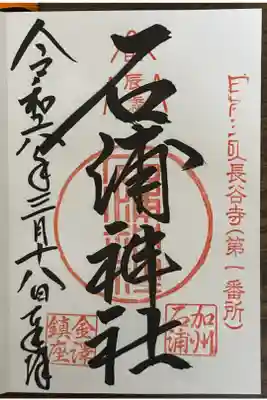 長谷寺(第一番所)
辰
石浦神社
加州
石浦
令和六年三月十八日奉拝
金澤
鎮座